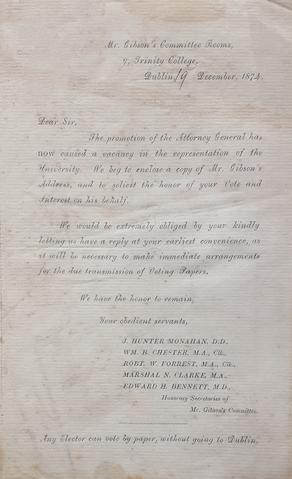 Mr. Gibson's Committee Rooms,
7, Trinity College,
Dublin, 19 December, 1874.
Dear Sir,
The promotion of the Attorney General has
now caused a vacancy in the representation of the
University. We beg to enclose a copy of Mr. Gibson's
Address, and to solicit the honor of your Vote and
Interest on his behalf.
We would be extremely obliged by your kindly
letting us have a reply at your earliest convenience, as
it will be necessary to make immediate arrangements
for the due transmission of Voting Papers.
We have the honor to remain,
Your obedient servants,
J. HUNTER MONAHAN, D.D.
WM. B. CHESTER, M.A., CLK.,
ROBT. W. FORREST, M.A., CLK.,
MARSHAL N. CLARKE, M.A.,
EDWARD H. BENNETT, M.D.,
Honorary Secretaries of
Mr. Gibson's Committee.
Any Elector can vote by paper, without going to Dublin.